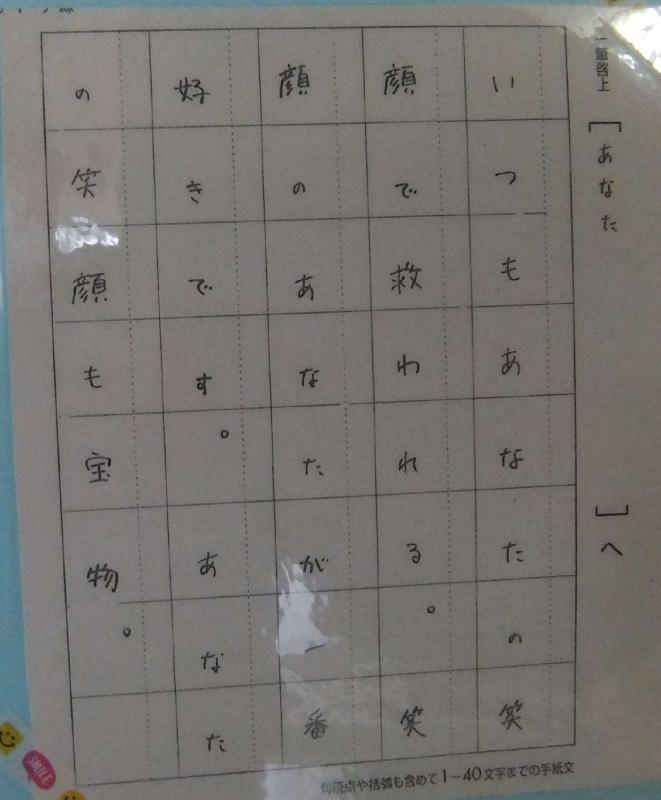 一筆啓上
[あなた]へ
いつもあなたの笑
顔で救われる。笑
顔のあなたが一番
好きです。あなた
の笑顔も宝物。
句読点や括弧も含めて1〜40文字までの手紙文
SMILE